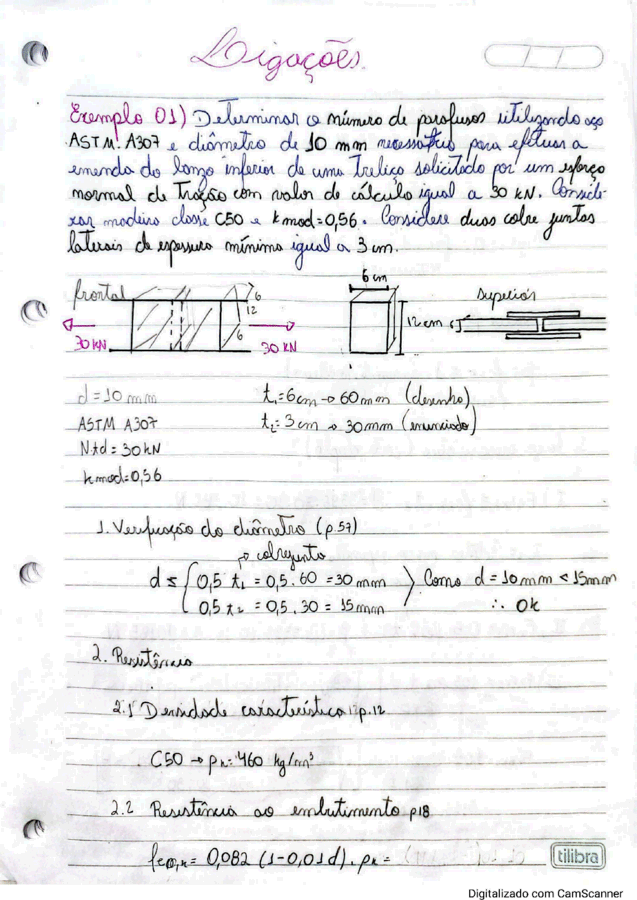 Ligações.
Exemplo 01) Determinar o número de parafusos utilizando aço
ASTM A307 e diâmetro de 10 mm necessário para efetuar a
emenda do banzo inferior de uma Treliça solicitado por um esforço
normal de Tração com valor de cálculo igual a 30 kN. Conside-
rar madeira classe C50 e kmod=0,56. Considere duas cobre juntas
laterais de espessura mínima igual a 3 cm.
frontal
6
12
6
30 kN
30 kN
6 cm
12 cm
superior
d = 10 mm
t₁ = 6cm → 60mm (desenho)
ASTM A307
t₂ = 3 cm → 30mm (enunciado)
Ntd = 30kN
kmod=0,56
1. Verificação do diâmetro (p.57)
→ cobrejunta
d ≤ { 0,5 t₁ = 0,5 . 60 = 30 mm
0,5 t₂ = 0,5 . 30 = 15mm
Como d = 10mm < 15mm
∴ Ok
2. Resistência
2.1 Densidade característica p.12
C50 → ρk = 460 kg/m³
2.2 Resistência ao embutimento p18
fe0,k = 0,082 (1-0,01d). ρk =
tilibra
Digitalizado com CamScanner